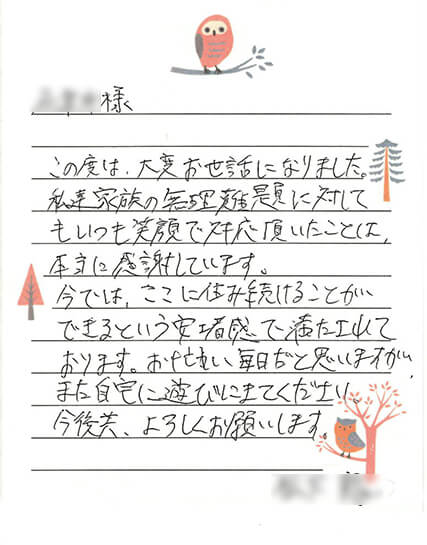 様
この度は、大変お世話になりました。
私達家族の無理難題に対して
もいつも笑顔で対応頂いたことは、
本当に感謝しています。
今では、ここに住み続けることが
できるという安堵感で満たされて
おります。お忙しい毎日だと思いますが、
また自宅に遊びにきてください。
今後共、よろしくお願いします。